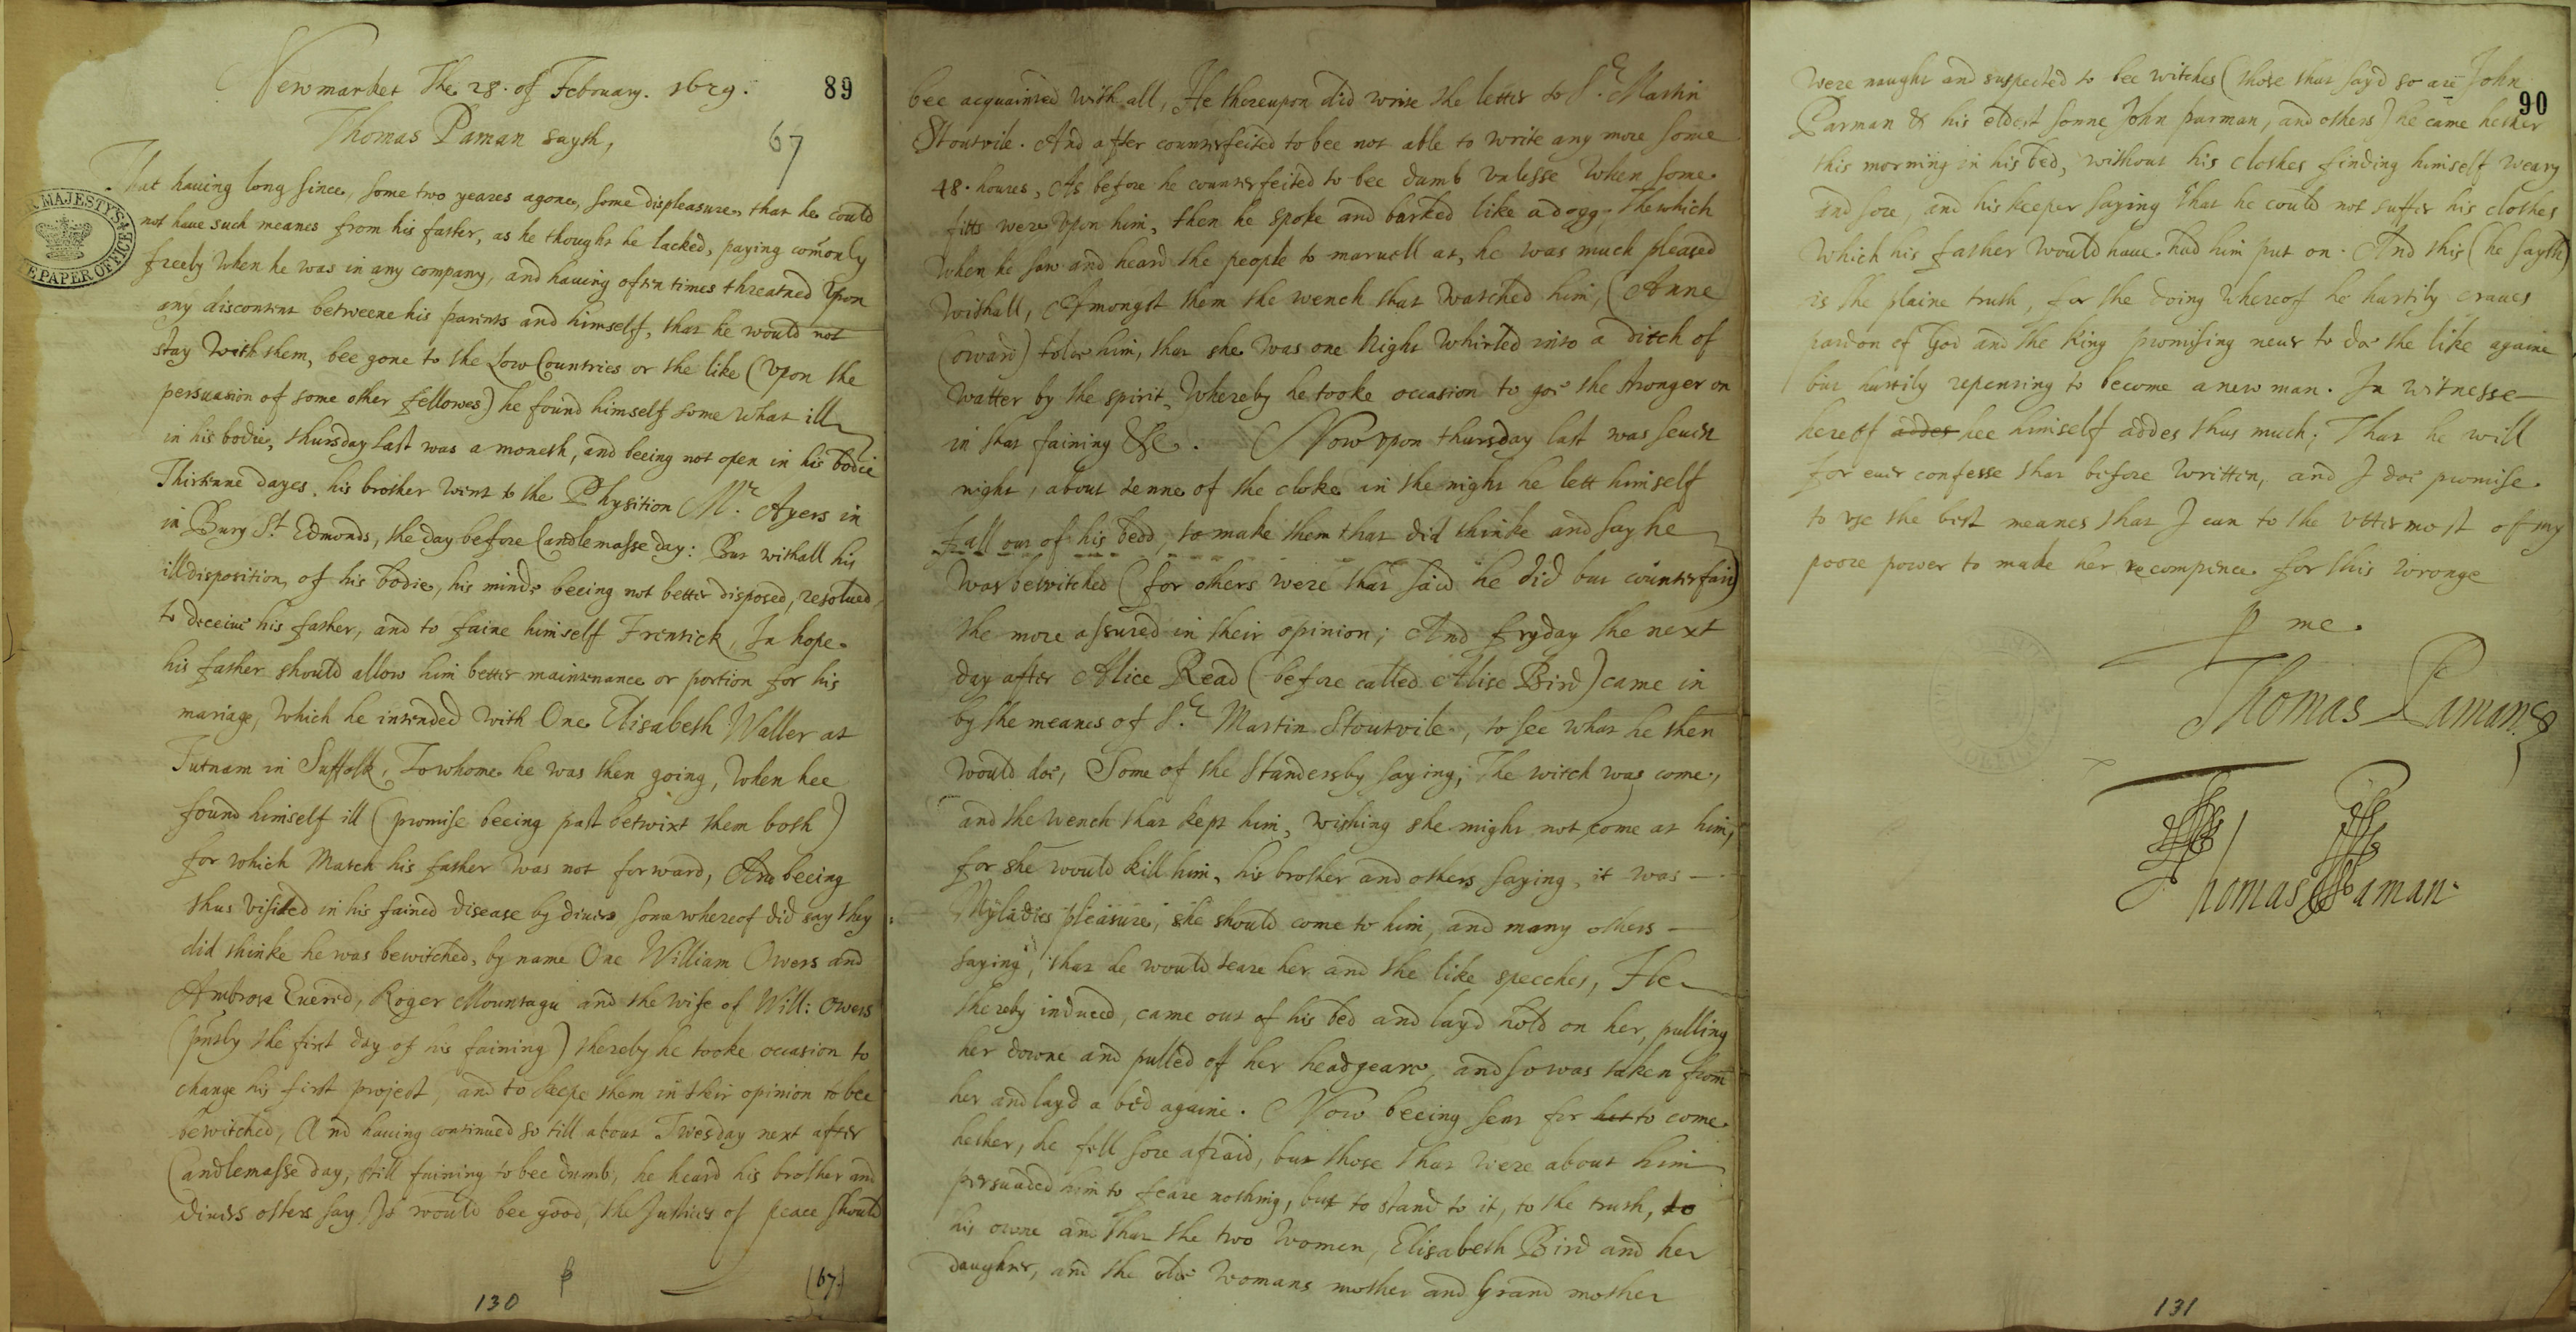 Newmarket The 28. of February. 1629.
89
Thomas Paman sayth,
67
That hauing long since, some two yeares agone, some displeasure, that he could
not haue such meanes from his father, as he thought he lacked, paying comonly
freely when he was in any company, and hauing often times threatned Vpon
any discontent betweene his parents and himself, that he would not
stay with them, bee gone to the Low Countries or the like (Vpon the
persuasion of some other fellowes) he found himself some what ill
in his bodie, thursday last was a moneth, and beeing not open in his bodie
Thirtenne dayes, his brother went to the Physition Mr. Ayers in
in Bury St. Edmonds, the day before Candlemasse day: But withall his
ill disposition, of his bodie, his minde beeing not better disposed, resolued
to deceiue his father, and to faine himself Frentick, In hope
his father should allow him better maintenance or portion for his
mariage, Which he intended with One Elisabeth Waller at
Tutnam in Suffolk, To whome he was then going, When hee
found himself ill (promise beeing past betwixt them both)
for which Match his father was not forward, And beeing
thus visited in his fained disease by diuers some whereof did say they
did thinke he was bewitched, by name One William Owers and
Ambrose Euered, Roger Mountagu and the wife of Will: Owers
(pntly the first day of his faining) thereby he tooke occasion to
change his first project, and to keepe them in their opinion to bee
bewitched, And hauing continued so till about Twesday next after
Candlemasse day, still faining to bee dumb, he heard his brother and
diuers others say It would bee good, the Justices of peace should
(67.)
130
HER MAJESTY'S
STATE PAPER OFFICE
bee acquainted with all, He thereupon did write the letter to Sr. Martin
Stoutvile. And after counterfeited to bee not able to write any more some
48. houres, As before he counterfeited to bee dumb vnlesse when some
fitts were vpon him, then he spoke and barked like a dogg, The which
When he saw and heard the people to maruell at, he was much pleased
Withall, Amongst them the wench that watched him, (Anne
Coward) tolde him, that she was one Night Whirled into a ditch of
Watter by the spirit, Whereby he tooke occasion to goe the stronger on
in that faining &c. Now vpon thursday last was seuen
night, about tenne of the cloke in the night he lett himself
fall out of his bedd, to make them that did thinke and say he
Was bewitched (for others were that said he did but counterfait)
the more assured in their opinion; And fryday the next
day after Alice Read (before called Alise Bird) came in
by the meanes of Sr. Martin Stoutvile, to see what he then
would doe, Some of the Standersby saying, The witch was come,
and the wench that kept him, wishing she might not come at him,
for she would kill him, his brother and others saying, it was
Myladies pleasure, she should come to him, and many others
saying, that he would teare her and the like speeches, He
thereby induced, came out of his bed and layd hold on her, pulling
her downe and pulled off her headgeare, and so was taken from
her and layd a bed againe. Now beeing sent for her to come
hether, he fell sore afraid, but those that were about him
persuaded him to feare nothing, but to stand to it, to the truth, to
his owne and that the two Women, Elisabeth Bird and her
daughter, and the olde womans mother and Grand mother
were naught and suspected to bee witches (those that sayd so are John
90
Parman & his eldest sonne John parman, and others) he came hether
this morning in his bed, without his clothes finding himself weary
and sore and his keeper saying that he could not suffer his clothes
Which his father Would haue had him put on. And this (he sayth)
is the plaine truth, for the doing whereof he hartily craues
pardon of God and the King promising neuer to doe the like againe
but hartily repenting to become a new man. In witnesse
hereof addes hee himself addes thus much; That he will
for euer confesse that before written, and I doe promise
to vse the best meanes that I can to the vttermost of my
poore power to make her recompence for this wronge
p me
Thomas Paman
Thomas Paman
131